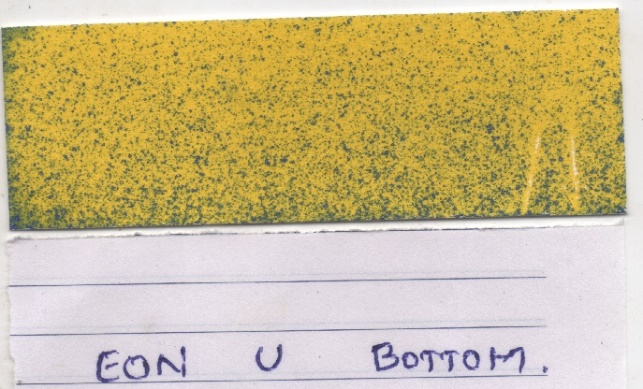 EON U BOTTOM.